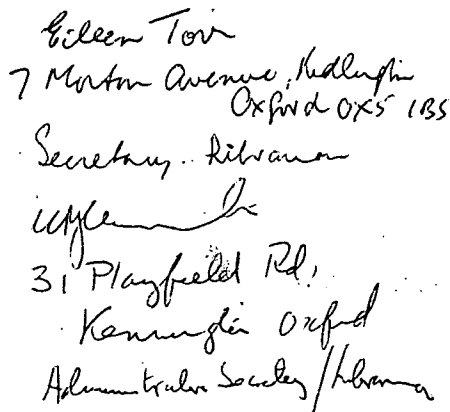 Eileen Tovi
7 Morton Avenue, Kidlington
Oxford OX5 1BS
Secretary. Librarian
31 Playfield Rd,
Kennington Oxford
Administrative Secretary / Librarian